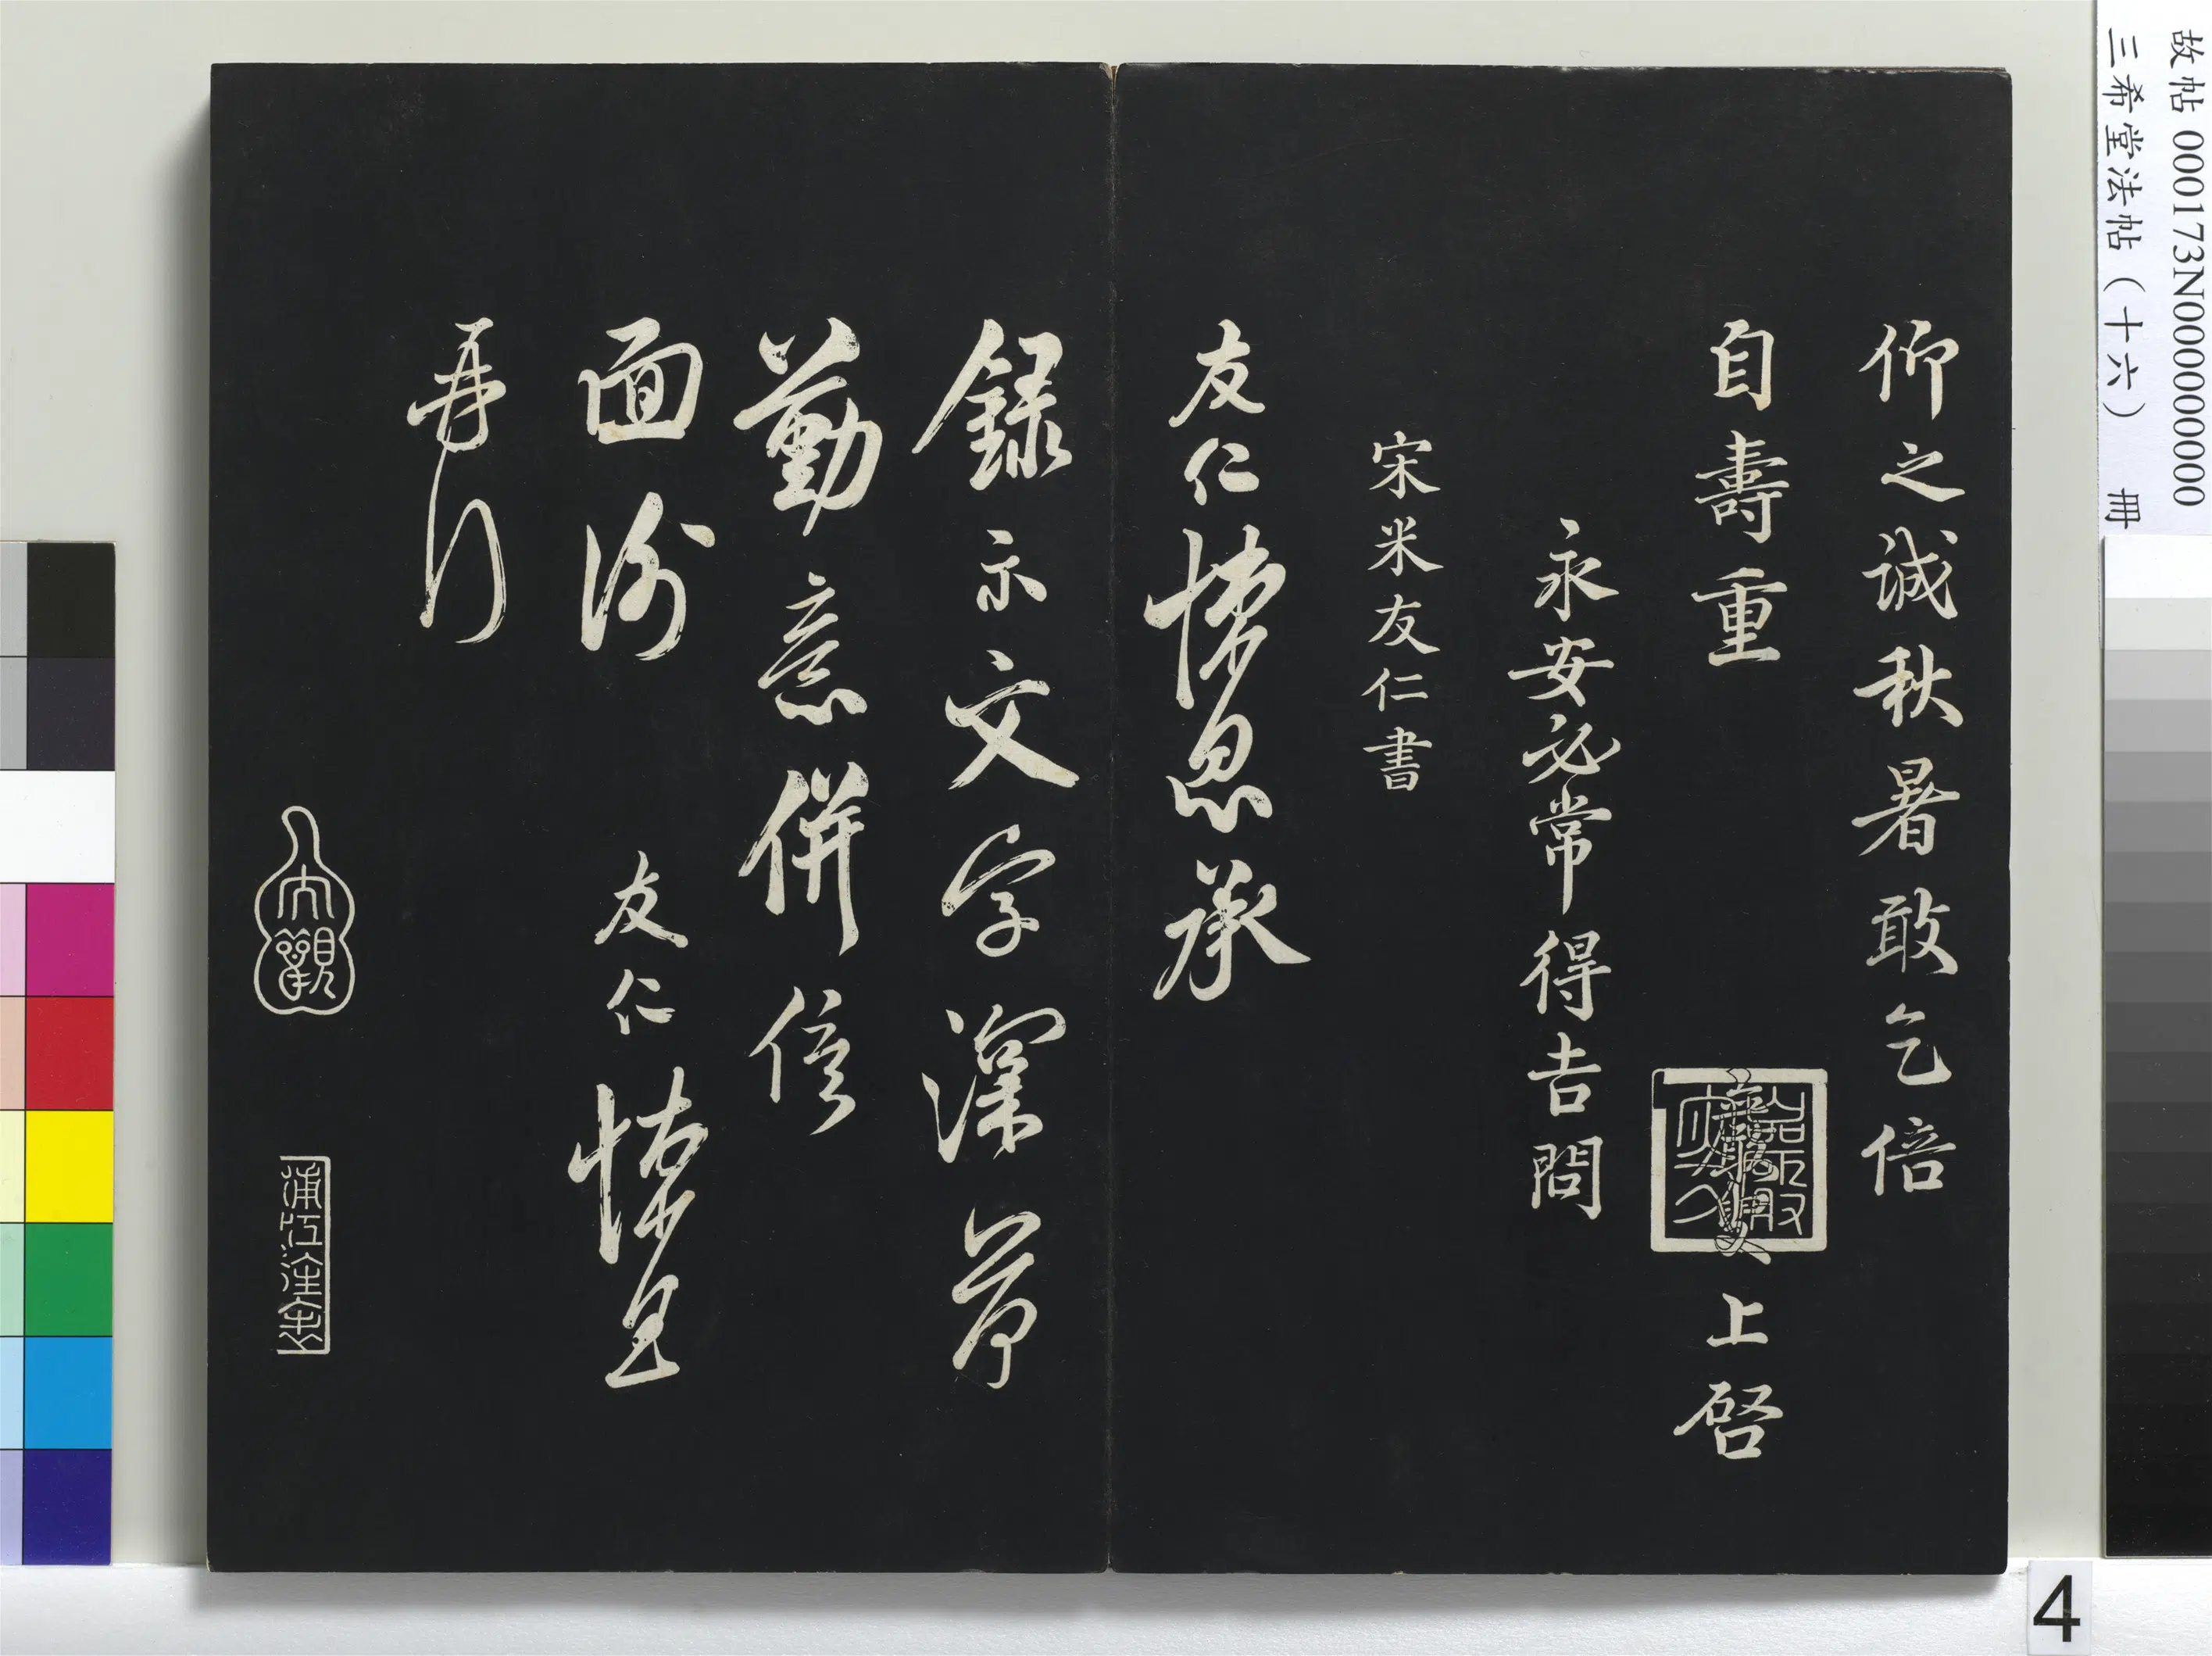 故帖 000173N000000000
三希堂法帖（十六） 冊
仰之誠秋暑敢乞倍
自壽重
上啓
永安必常得吉問
宋米友仁書
友仁悚息承
錄示文字深荷
勤意併俟
面謝
友仁悚息
再行
大觀
4